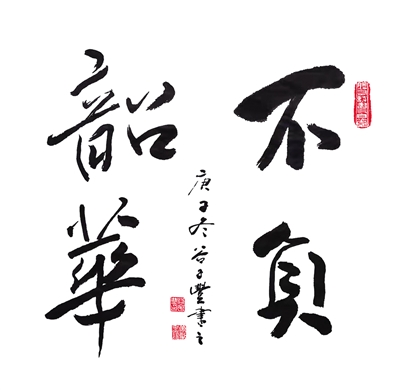 不負
韶華
庚子冬谷子豐書之